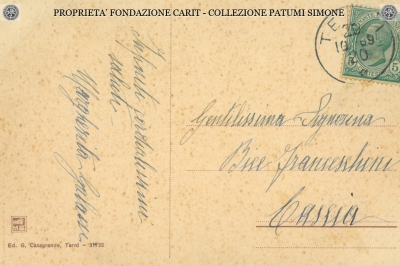 PROPRIETA' FONDAZIONE CARIT - COLLEZIONE PATUMI SIMONE
Infiniti cordialissimi
saluti
Margherita
Gentilissima Signorina
Bice Franceschini
Cascia
Ed. G. Casagrande, Terni